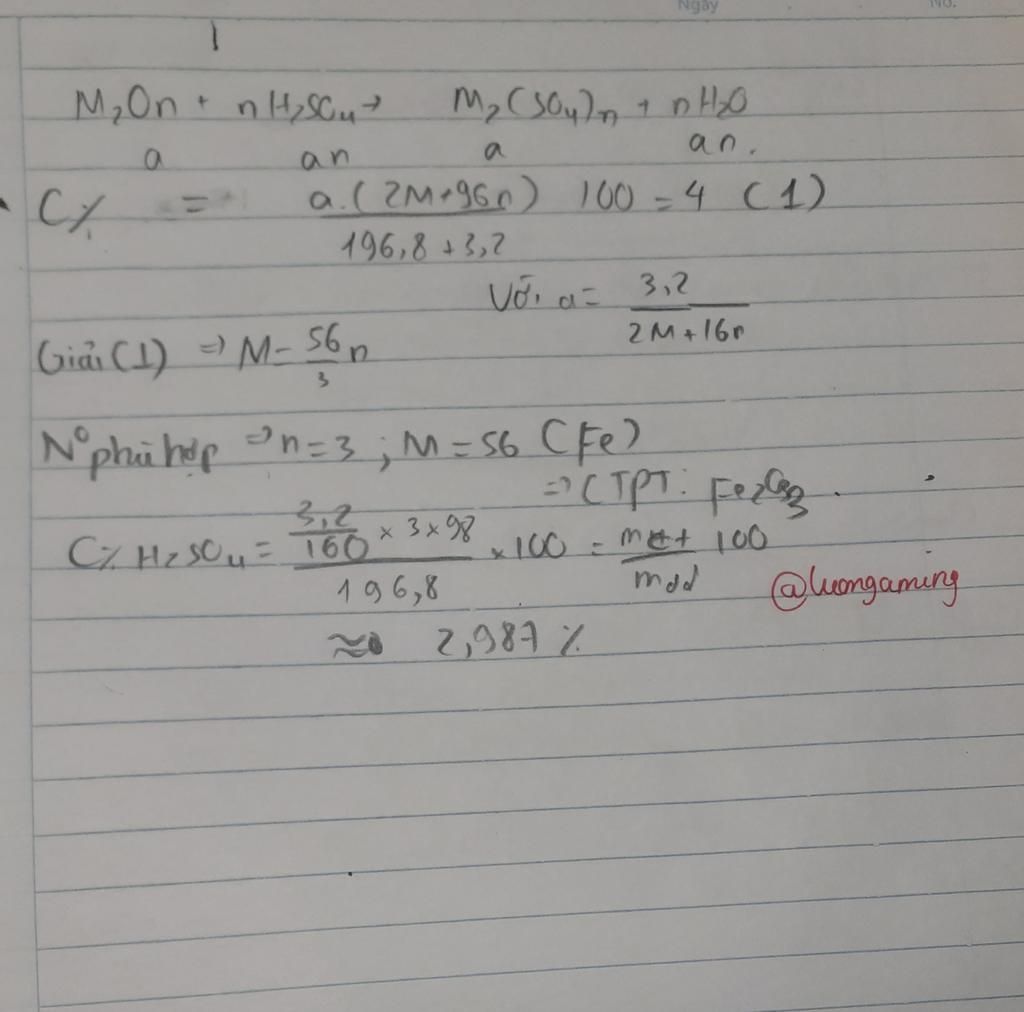 Ngày No.
1
M₂On + nH₂SO₄ → M₂(SO₄)n + nH₂O
a an a an.
C% = a.(2M+96n) 100 = 4 (1)
196,8 + 3,2
Với a = 3,2
2M+16n
Giải (1) => M = 56/3 n
N⁰ phù hợp => n=3 ; M=56 (Fe)
=> CTPT: Fe₂O₃.
C% H₂SO₄ = 3,2/160 × 3 × 98 × 100 = mct 100
196,8 mdd
@luongaming
≈ 2,987 %